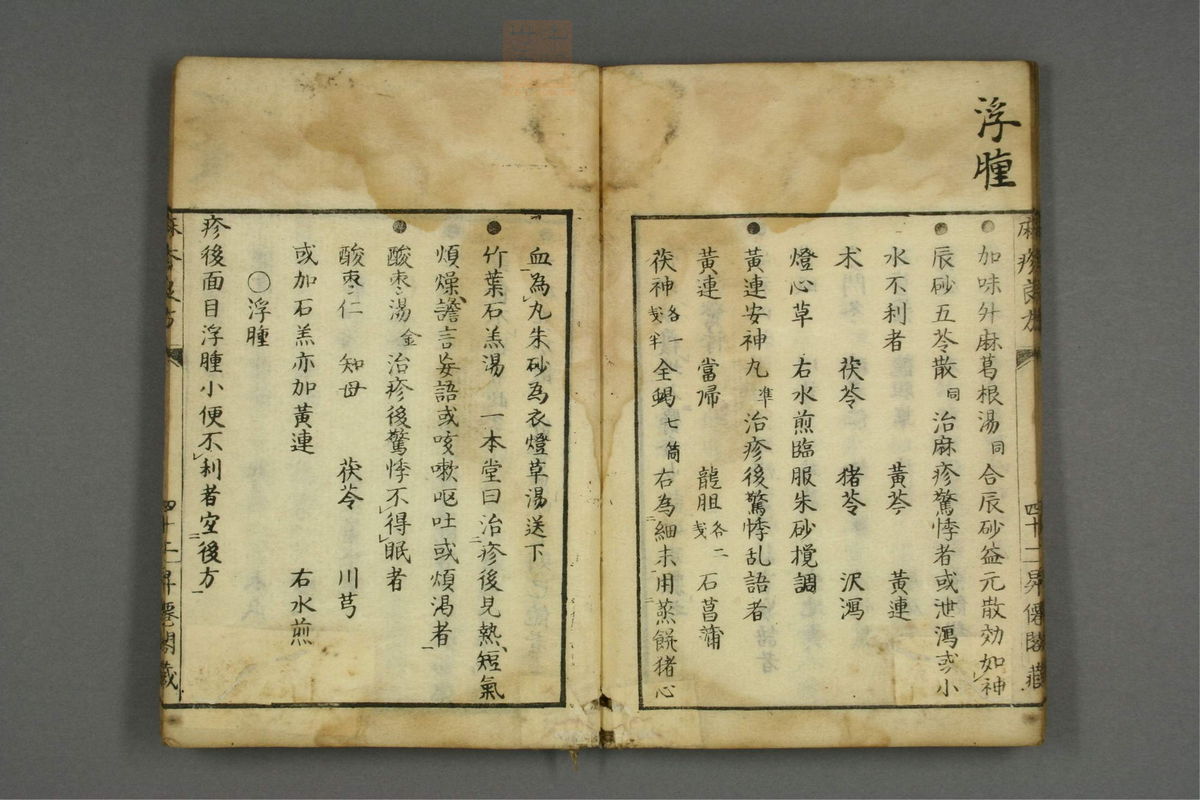 浮腫
加味升麻葛根湯同合辰砂益元散効如神
辰砂五苓散同治麻疹驚悸者或泄瀉或小
水不利者 黄芩 黄連
朮 茯苓 猪苓 沢瀉
燈心草 右水煎臨服朱砂撹調
黄連安神丸準治疹後驚悸乱語者
黄連 當帰 龍胆各二戔 石菖蒲
茯神各一戔半 全蝎七箇 右為細末用蒸餅猪心
四十二 昇僊閣蔵
血為丸朱砂為衣燈草湯送下
竹葉石羔湯 一本堂曰治疹後見熱短氣
煩燥譫言妄語或咳嗽呕吐或煩渇者
酸枣湯金治疹後驚悸不得眠者
酸枣仁 知母 茯苓 川芎
或加石羔亦加黄連 右水煎
浮腫
疹後面目浮腫小便不利者宜後方